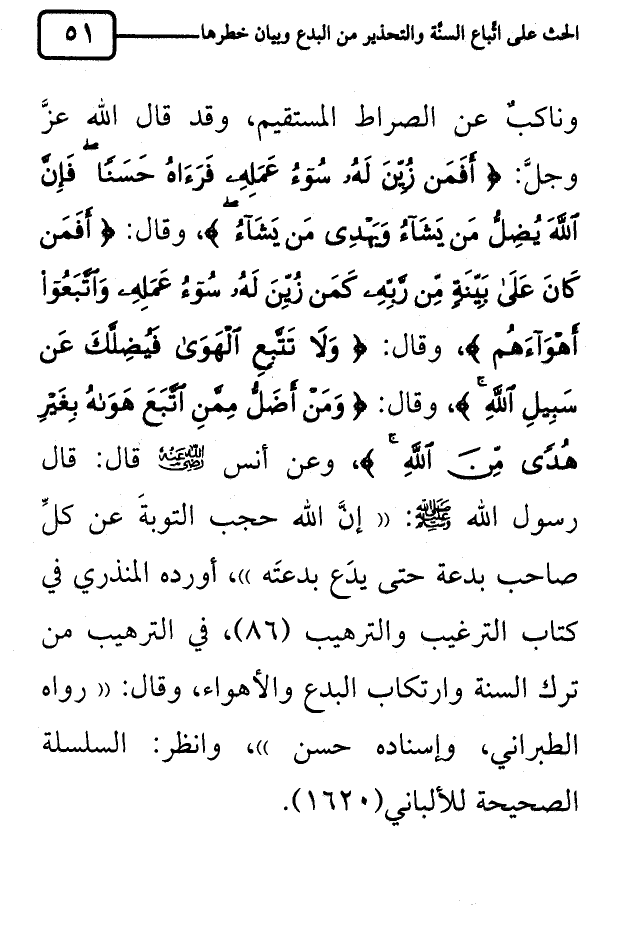 الحث على اتِّباع السنَّة والتحذير من البدع وبيان خطرها ٥١
وناكبٌ عن الصراط المستقيم، وقد قال الله عزَّ
وجلَّ: ﴿ أَفَمَن زُيِّنَ لَهُۥ سُوٓءُ عَمَلِهِۦ فَرَءَاهُ حَسَنًا ۖ فَإِنَّ
ٱللَّهَ يُضِلُّ مَن يَشَآءُ وَيَهْدِى مَن يَشَآءُ ۖ ﴾، وقال: ﴿ أَفَمَن
كَانَ عَلَىٰ بَيِّنَةٍ مِّن رَّبِّهِۦ كَمَن زُيِّنَ لَهُۥ سُوٓءُ عَمَلِهِۦ وَٱتَّبَعُوٓا۟
أَهْوَآءَهُم ﴾، وقال: ﴿ وَلَا تَتَّبِعِ ٱلْهَوَىٰ فَيُضِلَّكَ عَن
سَبِيلِ ٱللَّهِ ۚ ﴾، وقال: ﴿ وَمَنْ أَضَلُّ مِمَّنِ ٱتَّبَعَ هَوَىٰهُ بِغَيْرِ
هُدًى مِّنَ ٱللَّهِ ۚ ﴾، وعن أنس رضي الله عنه قال: قال
رسول الله ﷺ: (( إنَّ الله حجب التوبةَ عن كلِّ
صاحب بدعة حتى يدَع بدعتَه ))، أورده المنذري في
كتاب الترغيب والترهيب (٨٦)، في الترهيب من
ترك السنة وارتكاب البدع والأهواء، وقال: (( رواه
الطبراني، وإسناده حسن ))، وانظر: السلسلة
الصحيحة للألباني(١٦٢٠).